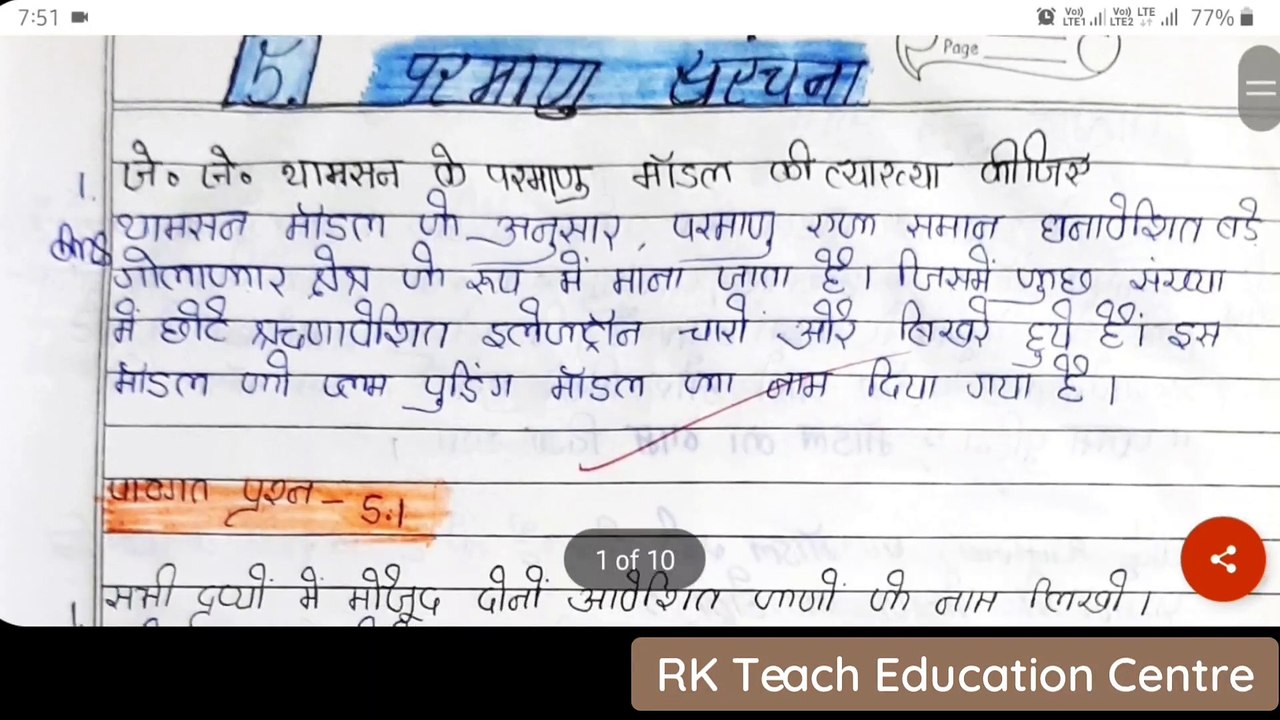 7:51
Vo) LTE1 Vo) LTE2 LTE 77%
Page
5. परमाणु संरचना
1. जे. जे. थामसन के परमाणु मॉडल की व्याख्या कीजिए
थामसन मॉडल के अनुसार, परमाणु एक समान धनावेशित बड़े
गोलाकार क्षेत्र के रूप में माना जाता है। जिसमें कुछ संख्या
में छोटे ऋणावेशित इलेक्ट्रॉन चारों ओर बिखरे हुये हैं। इस
मॉडल को प्लम पुडिंग मॉडल का नाम दिया गया है।
पाठगत प्रश्न - 5.1
1 of 10
सभी द्रव्यों में मौजूद दोनों आवेशित कणों के नाम लिखो।
RK Teach Education Centre